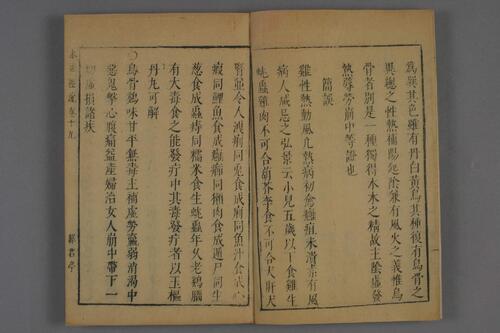 為巽其色雖有丹白黃烏其種復有烏骨之
異總之性熱補陽起陰兼有風火之義惟烏
骨者別是一種獨得水木之精故主陰虛發
熱蓐勞崩中等證也
簡誤
雞性熱動風凡熱病初愈癰疽未潰素有風
病人咸忌之弘景云小兒五歲以下食雞生
蚘蟲雞肉不可合葫芥李食不可合犬肝犬
腎並令人洩痢同兔食成痢同魚汁食成心
瘕同鯉魚食成癰癤同獺肉食成遁尸同生
葱食成蟲痔同糯米食生蚘蟲年久老鷄腦
有大毒食之能發疔中其毒發疔者以玉樞
丹丸可解
○烏骨鷄味甘平無毒主補虛勞羸弱消渴中
惡鬼擊心腹痛益產婦治女人崩中帶下一
切虛損諸疾